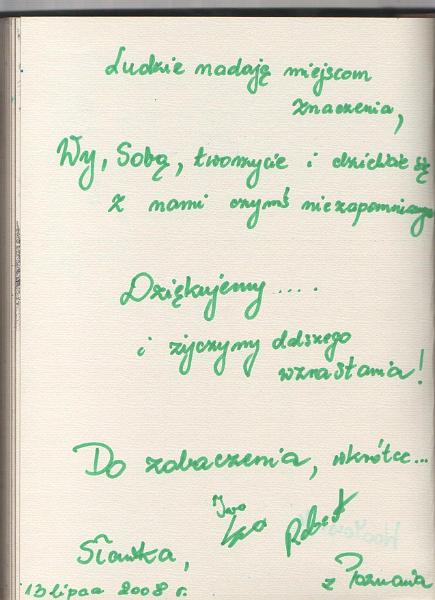 Ludzie nadają miejscom
znaczenia,
Wy, Sobą, tworzycie i dzielicie się
z nami czymś niezapomnianym
Dziękujemy....
i życzymy dalszego
wzrastania!
Do zobaczenia, wkrótce...
Iwo
Robert
Sławka,
z Poznania
13 lipca 2008 r.